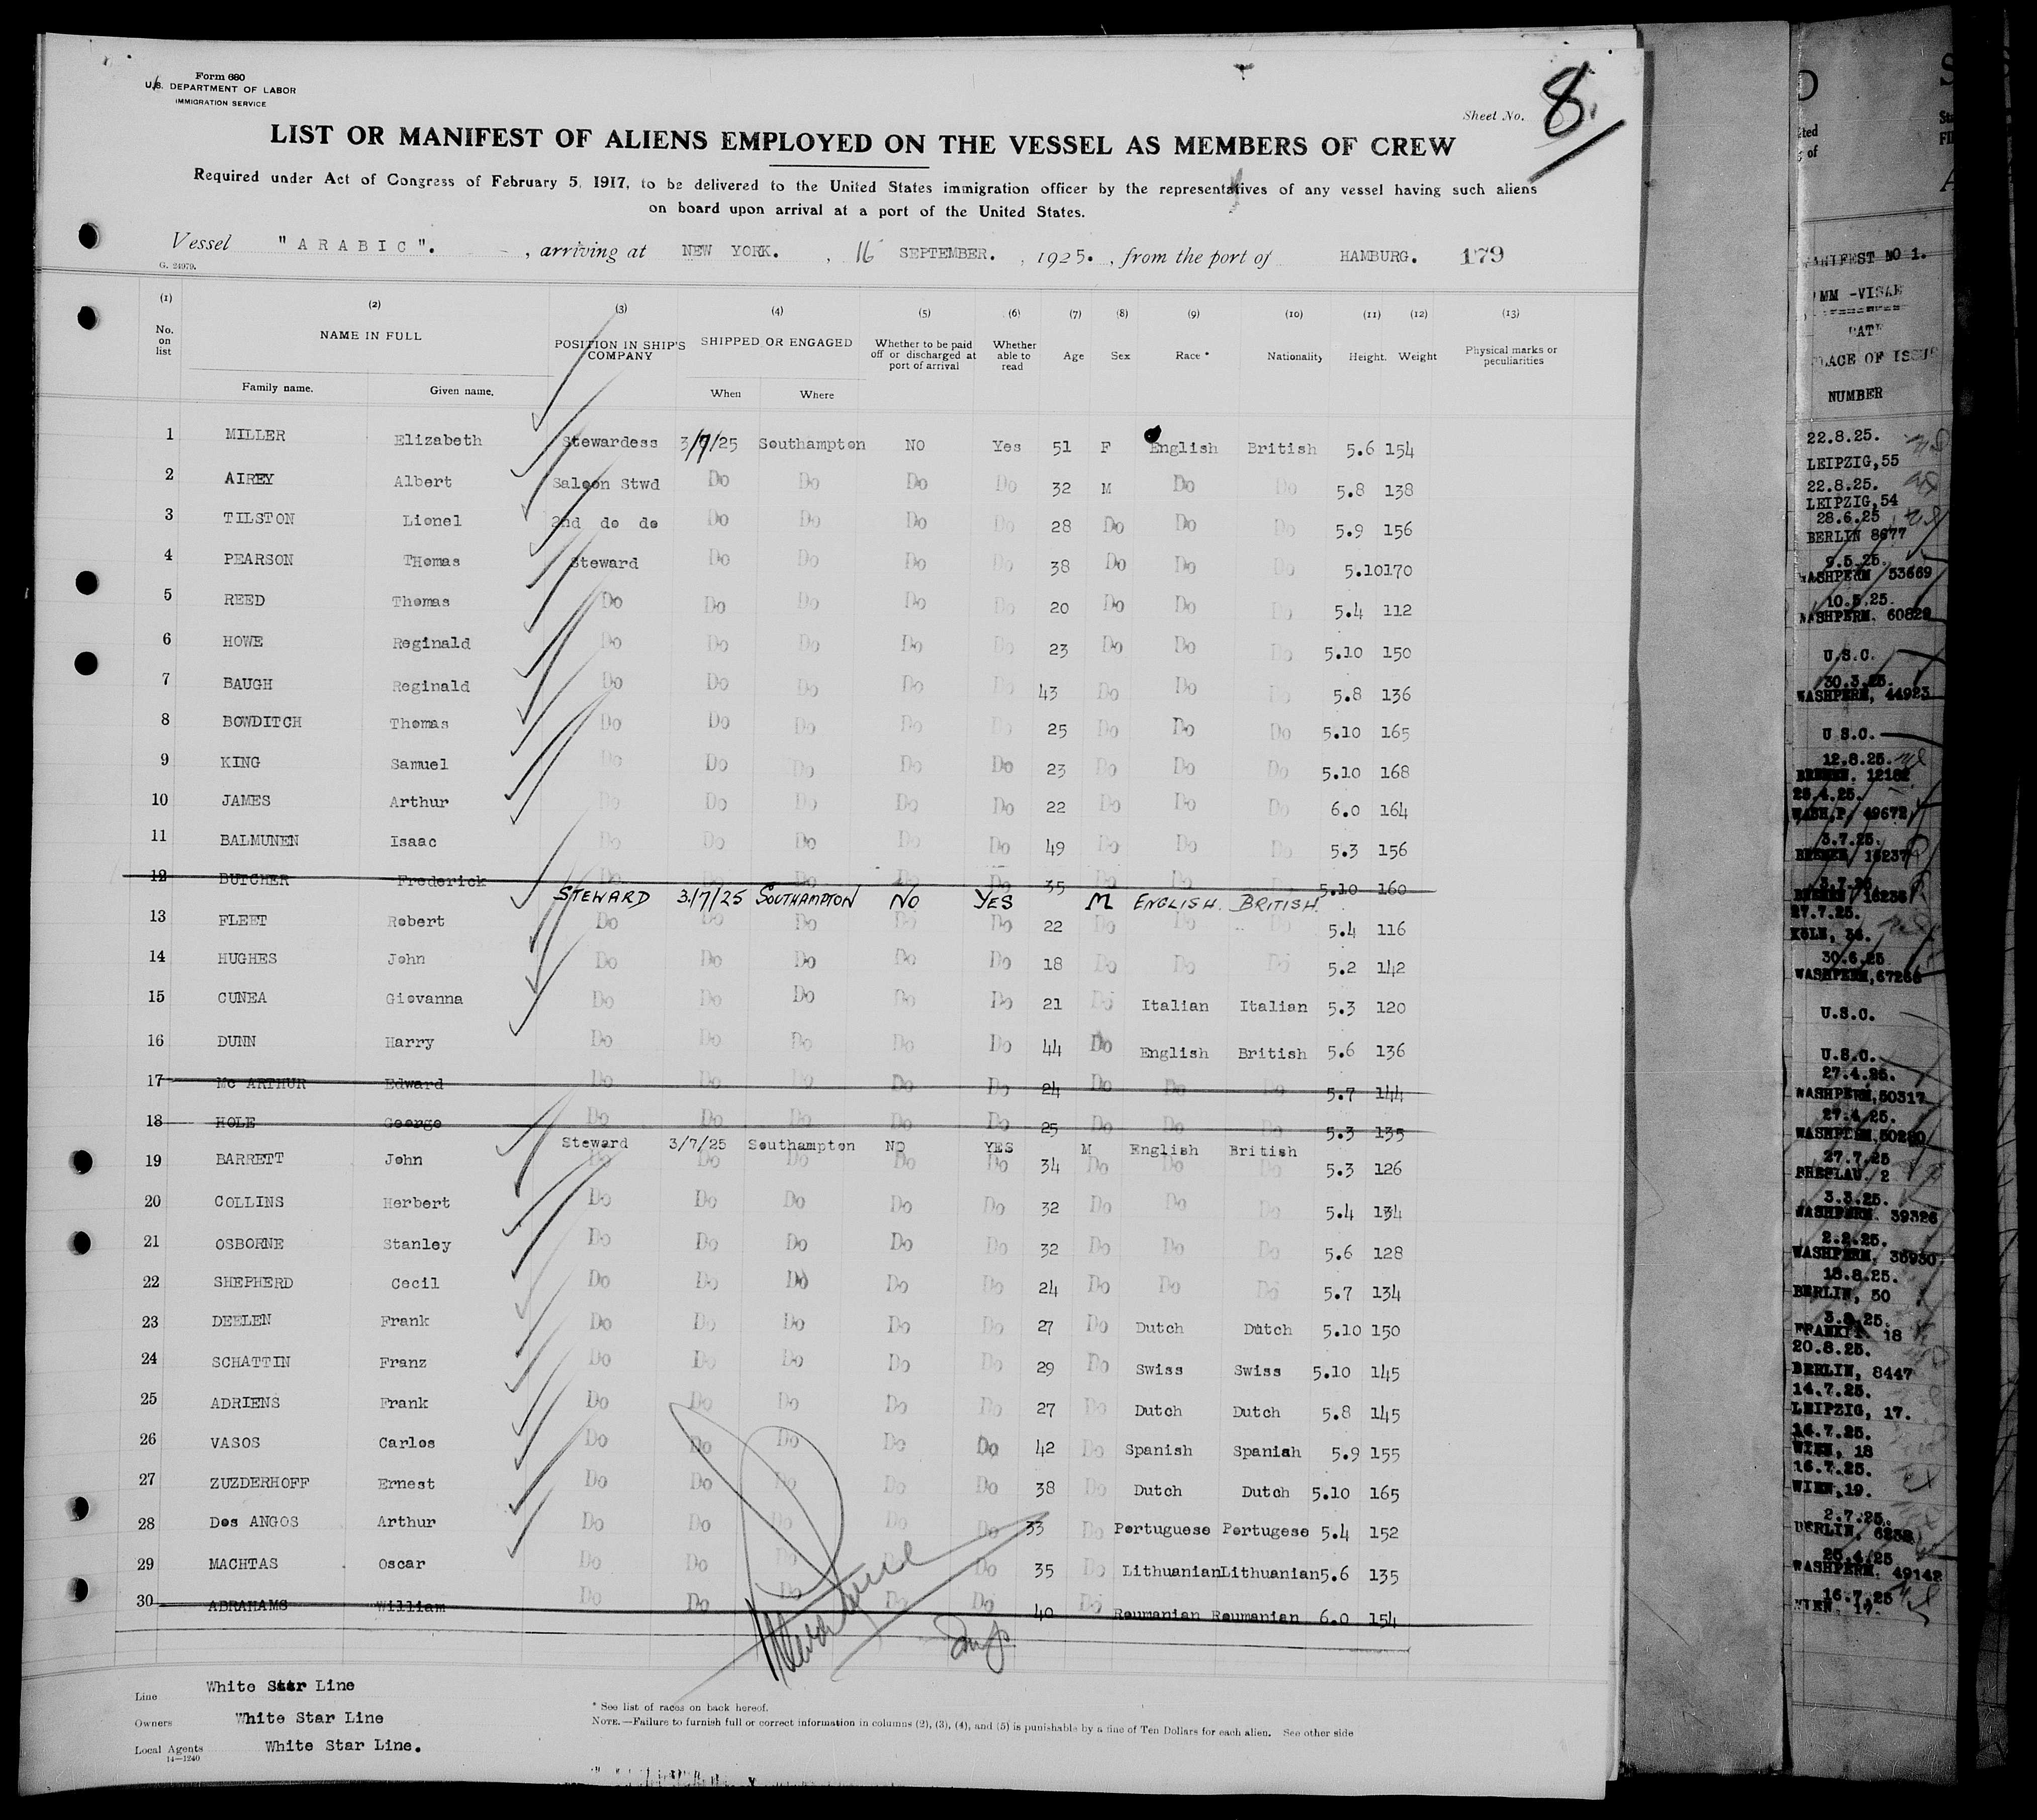 Form 680
U.S. DEPARTMENT OF LABOR
IMMIGRATION SERVICE
Sheet No. 8.
LIST OR MANIFEST OF ALIENS EMPLOYED ON THE VESSEL AS MEMBERS OF CREW
Required under Act of Congress of February 5, 1917, to be delivered to the United States immigration officer by the representatives of any vessel having such aliens
on board upon arrival at a port of the United States.
Vessel "ARABIC". , arriving at NEW YORK. , 16 SEPTEMBER. , 1925. , from the port of HAMBURG. 179
G. 24979.
(1) (2) (3) (4) (5) (6) (7) (8) (9) (10) (11) (12) (13)
No. on list NAME IN FULL POSITION IN SHIP'S COMPANY SHIPPED OR ENGAGED Whether to be paid off or discharged at port of arrival Whether able to read Age Sex Race * Nationality Height. Weight Physical marks or peculiarities
Family name. Given name. When Where
1 MILLER Elizabeth Stewardess 3/7/25 Southampton NO Yes 51 F English British 5.6 154
2 AIREY Albert Saloon Stwd Do Do Do Do 32 M Do Do 5.8 138
3 TILSTON Lionel 2nd do do Do Do Do Do 28 Do Do Do 5.9 156
4 PEARSON THomas Steward Do Do Do Do 38 Do Do Do 5.10 170
5 REED Thomas Do Do Do Do Do 20 Do Do Do 5.4 112
6 HOWE Reginald Do Do Do Do Do 23 Do Do Do 5.10 150
7 BAUGH Reginald Do Do Do Do Do 43 Do Do Do 5.8 136
8 BOWDITCH Thomas Do Do Do Do Do 25 Do Do Do 5.10 165
9 KING Samuel Do Do Do Do Do 23 Do Do Do 5.10 168
10 JAMES Arthur Do Do Do Do Do 22 Do Do Do 6.0 164
11 BALMUNEN Isaac Do Do Do Do Do 49 Do Do Do 5.3 156
12 BUTCHER Frederick Do Do Do Do Do 35 Do Do 5.10 160
STEWARD 3/7/25 SOUTHAMPTON NO YES M ENGLISH. BRITISH.
13 FLEET Robert Do Do Do Do Do 22 Do Do Do 5.4 116
14 HUGHES John Do Do Do Do Do 18 Do Do Do 5.2 142
15 CUNEA Giovanna Do Do Do Do Do 21 Do Italian Italian 5.3 120
16 DUNN Harry Do Do Do Do Do 44 Do English British 5.6 136
17 Mc ARTHUR Edward Do Do Do Do Do 24 Do Do Do 5.7 144
18 HOLE George Do Do Do Do Do 25 Do Do Do 5.3 135
Steward 3/7/25 Southampton NO YES M English British
19 BARRETT John Do Do Do Do Do 34 Do Do Do 5.3 126
20 COLLINS Herbert Do Do Do Do Do 32 Do Do Do 5.4 134
21 OSBORNE Stanley Do Do Do Do Do 32 Do Do Do 5.6 128
22 SHEPHERD Cecil Do Do Do Do Do 24 Do Do Do 5.7 134
23 DEELEN Frank Do Do Do Do Do 27 Do Dutch Dutch 5.10 150
24 SCHATTIN Franz Do Do Do Do Do 29 Do Swiss Swiss 5.10 145
25 ADRIENS Frank Do Do Do Do Do 27 Do Dutch Dutch 5.8 145
26 VASOS Carlos Do Do Do Do Do 42 Do Spanish Spanish 5.9 155
27 ZUZDERHOFF Ernest Do Do Do Do Do 38 Do Dutch Dutch 5.10 165
28 Dos ANGOS Arthur Do Do Do Do Do 33 Do Portuguese Portugese 5.4 152
29 MACHTAS Oscar Do Do Do Do 35 Do Lithuanian Lithuanian 5.6 135
30 ABRAHAMS William Do Do Do Do Do 40 Do Roumanian Roumanian 6.0 154
Line White Star Line
Owners White Star Line
Local Agents White Star Line.
14—1240
* See list of races on back hereof.
NOTE.—Failure to furnish full or correct information in columns (2), (3), (4), and (5) is punishable by a fine of Ten Dollars for each alien. See other side
MANIFEST NO 1.
IMM -VISAE
DATE
PLACE OF ISSUE
NUMBER
22.8.25.
LEIPZIG,55
22.8.25.
LEIPZIG,54
28.6.25
BERLIN 8677
9.5.25.
WASHPERM 53669
10.5.25.
WASHPERM. 60829
U.S.C.
30.3.25.
WASHPERM, 44923
U.S.C.
12.8.25.
BREMEN. 12182
25.4.25.
WASH.P. 49672
3.7.25.
BREMEN 16237
3.7.25
BREMEN 16236
27.7.25.
KOLN, 36.
30.6.25
WASHPERM,67256
U.S.C.
U.S.C.
27.4.25.
WASHPERM,50317
27.4.25.
27.7.25
BRESLAU. 2
3.3.25.
WASHPERM. 39326
2.2.25.
WASHPERM. 36930
18.8.25.
BERLIN, 50
3.8.25.
FRANKF. 18
20.8.25.
BERLIN, 8447
14.7.25.
LEIPZIG, 17.
14.7.25.
WIEN, 18
16.7.25.
WIEN,19.
2.7.25.
BERLIN, 6238
25.4.25
WASHPERM. 49142
16.7.25
WIEN. 17.